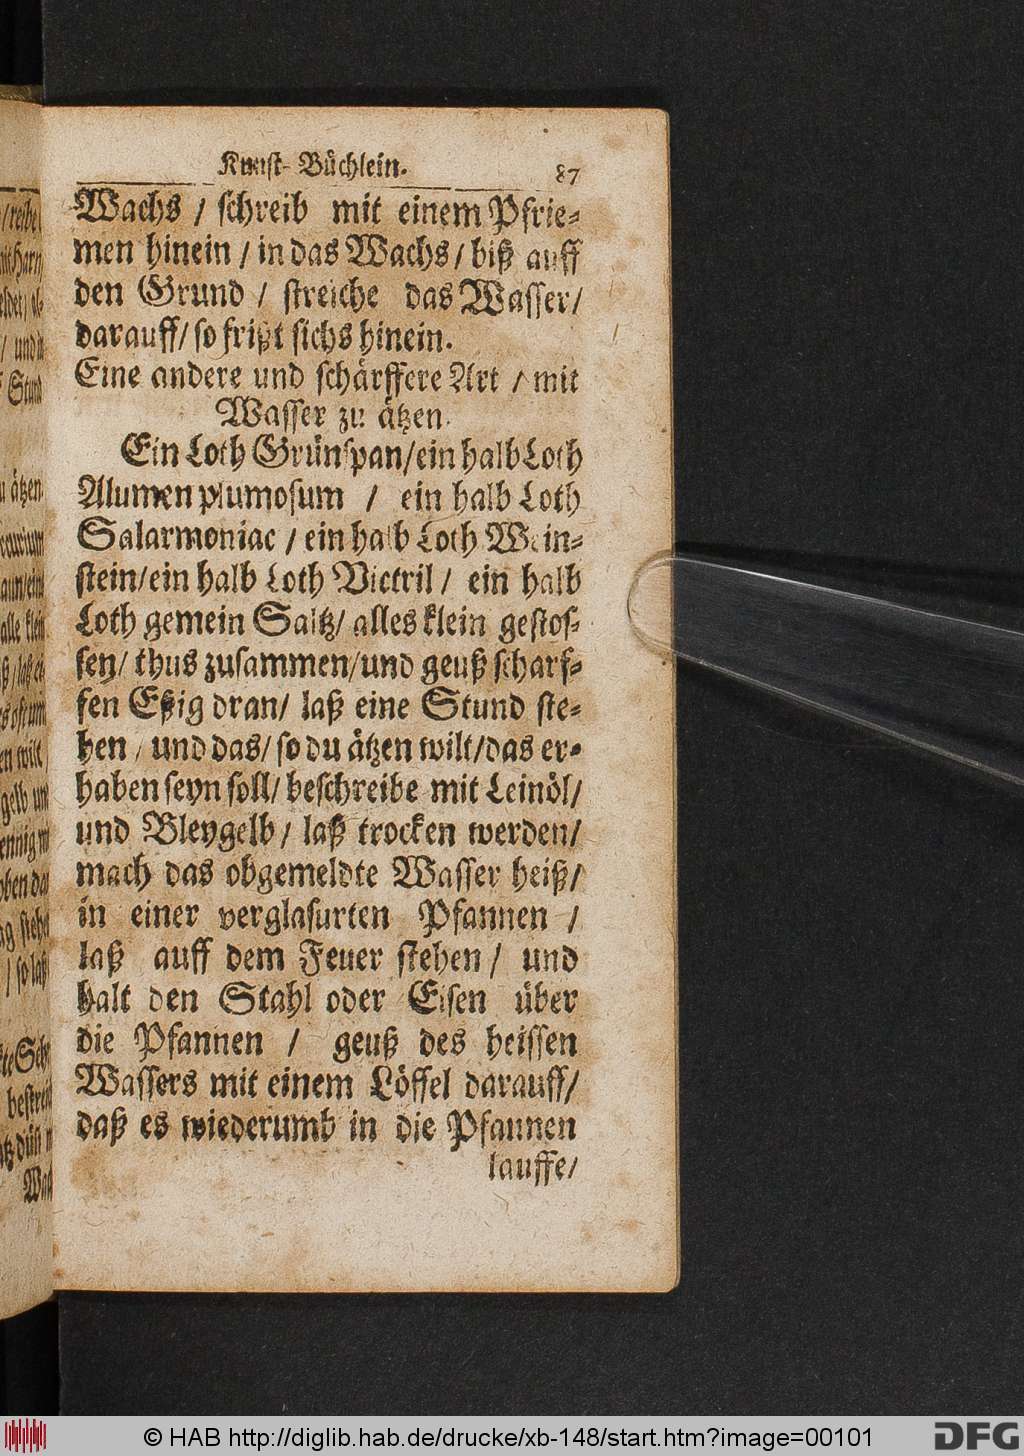 Kunst-Büchlein. 87
Wachs / schreib mit einem Pfrie-
men hinein / in das Wachs / biß auff
den Grund / streiche das Wasser /
darauff / so frißt sichs hinein.
Eine andere und schärffere Art / mit
Wasser zu ätzen.
Ein Loth Grünspan / ein halb Loth
Alumen plumosum / ein halb Loth
Salarmoniac / ein halb Loth Wein-
stein / ein halb Loth Victril / ein halb
Loth gemein Saltz / alles klein gestos-
sen / thus zusammen / und geuß scharf-
fen Eßig dran / laß eine Stund ste-
hen / und das / so du ätzen wilt / das er-
haben seyn soll / beschreibe mit Leinöl /
und Bleygelb / laß trocken werden /
mach das obgemeldte Wasser heiß /
in einer verglasurten Pfannen /
laß auff dem Feuer stehen / und
halt den Stahl oder Eisen über
die Pfannen / geuß des heissen
Wassers mit einem Löffel darauff /
daß es wiederumb in die Pfannen
lauffe /
© HAB http://diglib.hab.de/drucke/xb-148/start.htm?image=00101
DFG